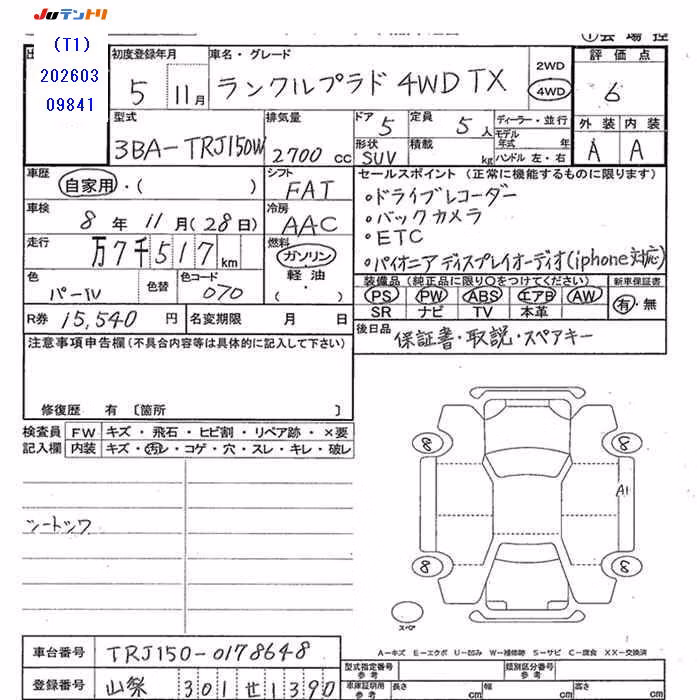 JUテントリ
(T1)
202603
09841
初度登録年月
5 11月
車名・グレード
ランクルプラド 4WD TX
2WD
4WD
評価点
6
型式
3BA-TRJ150W
排気量
2700 cc
ドア
5
定員
5人
形状
SUV
積載
kg
ディーラー・並行
モデル
年式 年
ハンドル 左・右
外装 内装
A A
車歴
自家用・( )
シフト
FAT
車検
8年11月(28日)
冷房
AAC
走行
万7千517km
燃料
ガソリン
軽油
( )
色
パール
色替
色コード
070
セールスポイント(正常に機能するものに限ります)
・ドライブレコーダー
・バックカメラ
・ETC
・パイオニアディスプレイオーディオ(iphone対応)
装備品(純正品に限り○をつけてください)
PS PW ABS エアB AW
SR ナビ TV 本革
新車保証書
有・無
R券 15,540円
名変期限 月 日
後日品
保証書・取説・スペアキー
注意事項申告欄(不具合内容等は具体的に記入して下さい)
修復歴 有 〔箇所 〕
検査員
記入欄
FW キズ・飛石・ヒビ割・リペア跡・×要
内装 キズ・汚レ・コゲ・穴・スレ・キレ・破レ
シートシワ
8
8
A1
8
8
スペア
A-キズ E-エクボ U-凹み W-補修跡 S-サビ C-腐食 XX-交換済
車台番号
TRJ150-0178648
登録番号
301せ1390
型式指定番号
参考
類別区分番号
参考
車庫証明用
参考
長さ cm
幅 cm
高さ cm